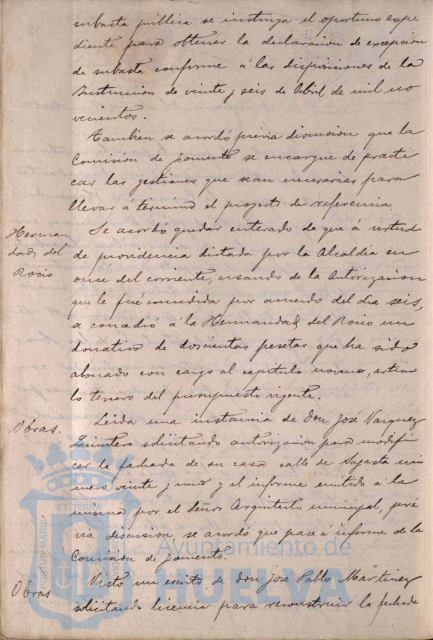 subasta pública se instruya el oportuno expe
diente para obtener la declaración de excepción
de subasta conforme á las disposiciones de la
Instrucción de veinte y seis de Abril de mil no
vecientos.
Tambien se acordó previa discusion que la
Comision de fomento se encargue de practi
car las gestiones que sean necesarias para
llevar á termino el proyecto de referencia
Herman
dad del
Rocio
Se acordó quedar enterado de que á virtud
de providencia dictada por la Alcaldía en
once del corriente, usando de la autorizacion
que le fué concedida por acuerdo del dia seis,
se concedió á la Hermandad del Rocio un
donativo de doscientas pesetas que ha sido
abonado con cargo al capitulo noveno, articu
lo tercero del presupuesto vigente.
Obras.
Leida una instancia de Don José Vazquez
solicitando autorizacion para modifi
car la fachada de su casa calle de Sagasta nú
mero veinte y y el informe emitido á la
misma por el Señor Arquitecto municipal, pré
via discusion se acordó que pase á informe de la
Comision de fomento.
Obras
Visto un escrito de don José Pablo Martinez
solicitando licencia para reconstruir la fachada
Ayuntamiento de
HUELVA